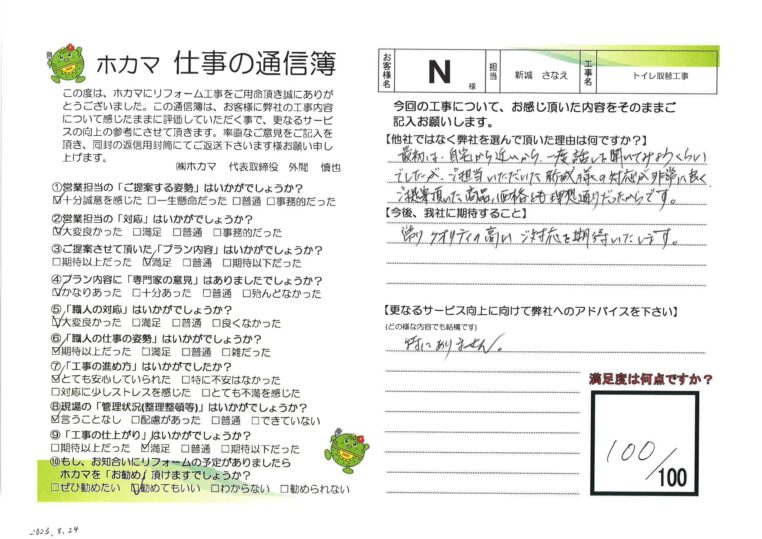 ホカマ 仕事の通信簿
この度は、ホカマにリフォーム工事をご用命頂き誠にありが
とうございました。この通信簿は、お客様に弊社の工事内容
について感じたままに評価していただく事で、更なるサービ
スの向上の参考にさせて頂きます。率直なご意見をご記入を
頂き、同封の返信用封筒にてご返送下さいます様お願い申し
上げます。
㈱ホカマ 代表取締役 外間 慎也
①営業担当の「ご提案する姿勢」はいかがでしょうか?
☑十分誠意を感じた □一生懸命だった □普通 □事務的だった
②営業担当の「対応」はいかがでしょうか?
☑大変良かった □満足 □普通 □事務的だった
③ご提案させて頂いた「プラン内容」はいかがでしょうか?
□期待以上だった ☑満足 □普通 □期待以下だった
④プラン内容に「専門家の意見」はありましたでしょうか?
☑かなりあった □十分あった □普通 □殆んどなかった
⑤「職人の対応」はいかがでしょうか?
☑大変良かった □満足 □普通 □良くなかった
⑥「職人の仕事の姿勢」はいかがでしょうか?
☑期待以上だった □満足 □普通 □雑だった
⑦「工事の進め方」はいかがでしたか?
☑とても安心していられた □特に不安はなかった
□対応に少しストレスを感じた □とても不満を感じた
⑧現場の「管理状況(整理整頓等)」はいかがでしょうか?
☑言うことなし □配慮があった □普通 □できていない
⑨「工事の仕上がり」はいかがでしょうか?
□期待以上だった ☑満足 □普通 □期待以下だった
⑩もし、お知合いにリフォームの予定がありましたら
ホカマを「お勧め」頂けますでしょうか?
□ぜひ勧めたい ☑勧めてもいい □わからない □勧められない
お客様名 N 様 担当 新城 さなえ 工事名 トイレ取替工事
今回の工事について、お感じ頂いた内容をそのままご
記入お願いします。
【他社ではなく弊社を選んで頂いた理由は何ですか?】
最初は、自宅から近いから、一度話して聞いてみようくらい
でしたが、ご担当いただいた新城様の対応が非常に良く
ご提案頂いた商品、価格とも理想通りだったからです。
【今後、我社に期待すること】
クオリティの高い ご対応を期待いたします。
【更なるサービス向上に向けて弊社へのアドバイスを下さい】
(どの様な内容でも結構です)
特にありません。
満足度は何点ですか?
100/100